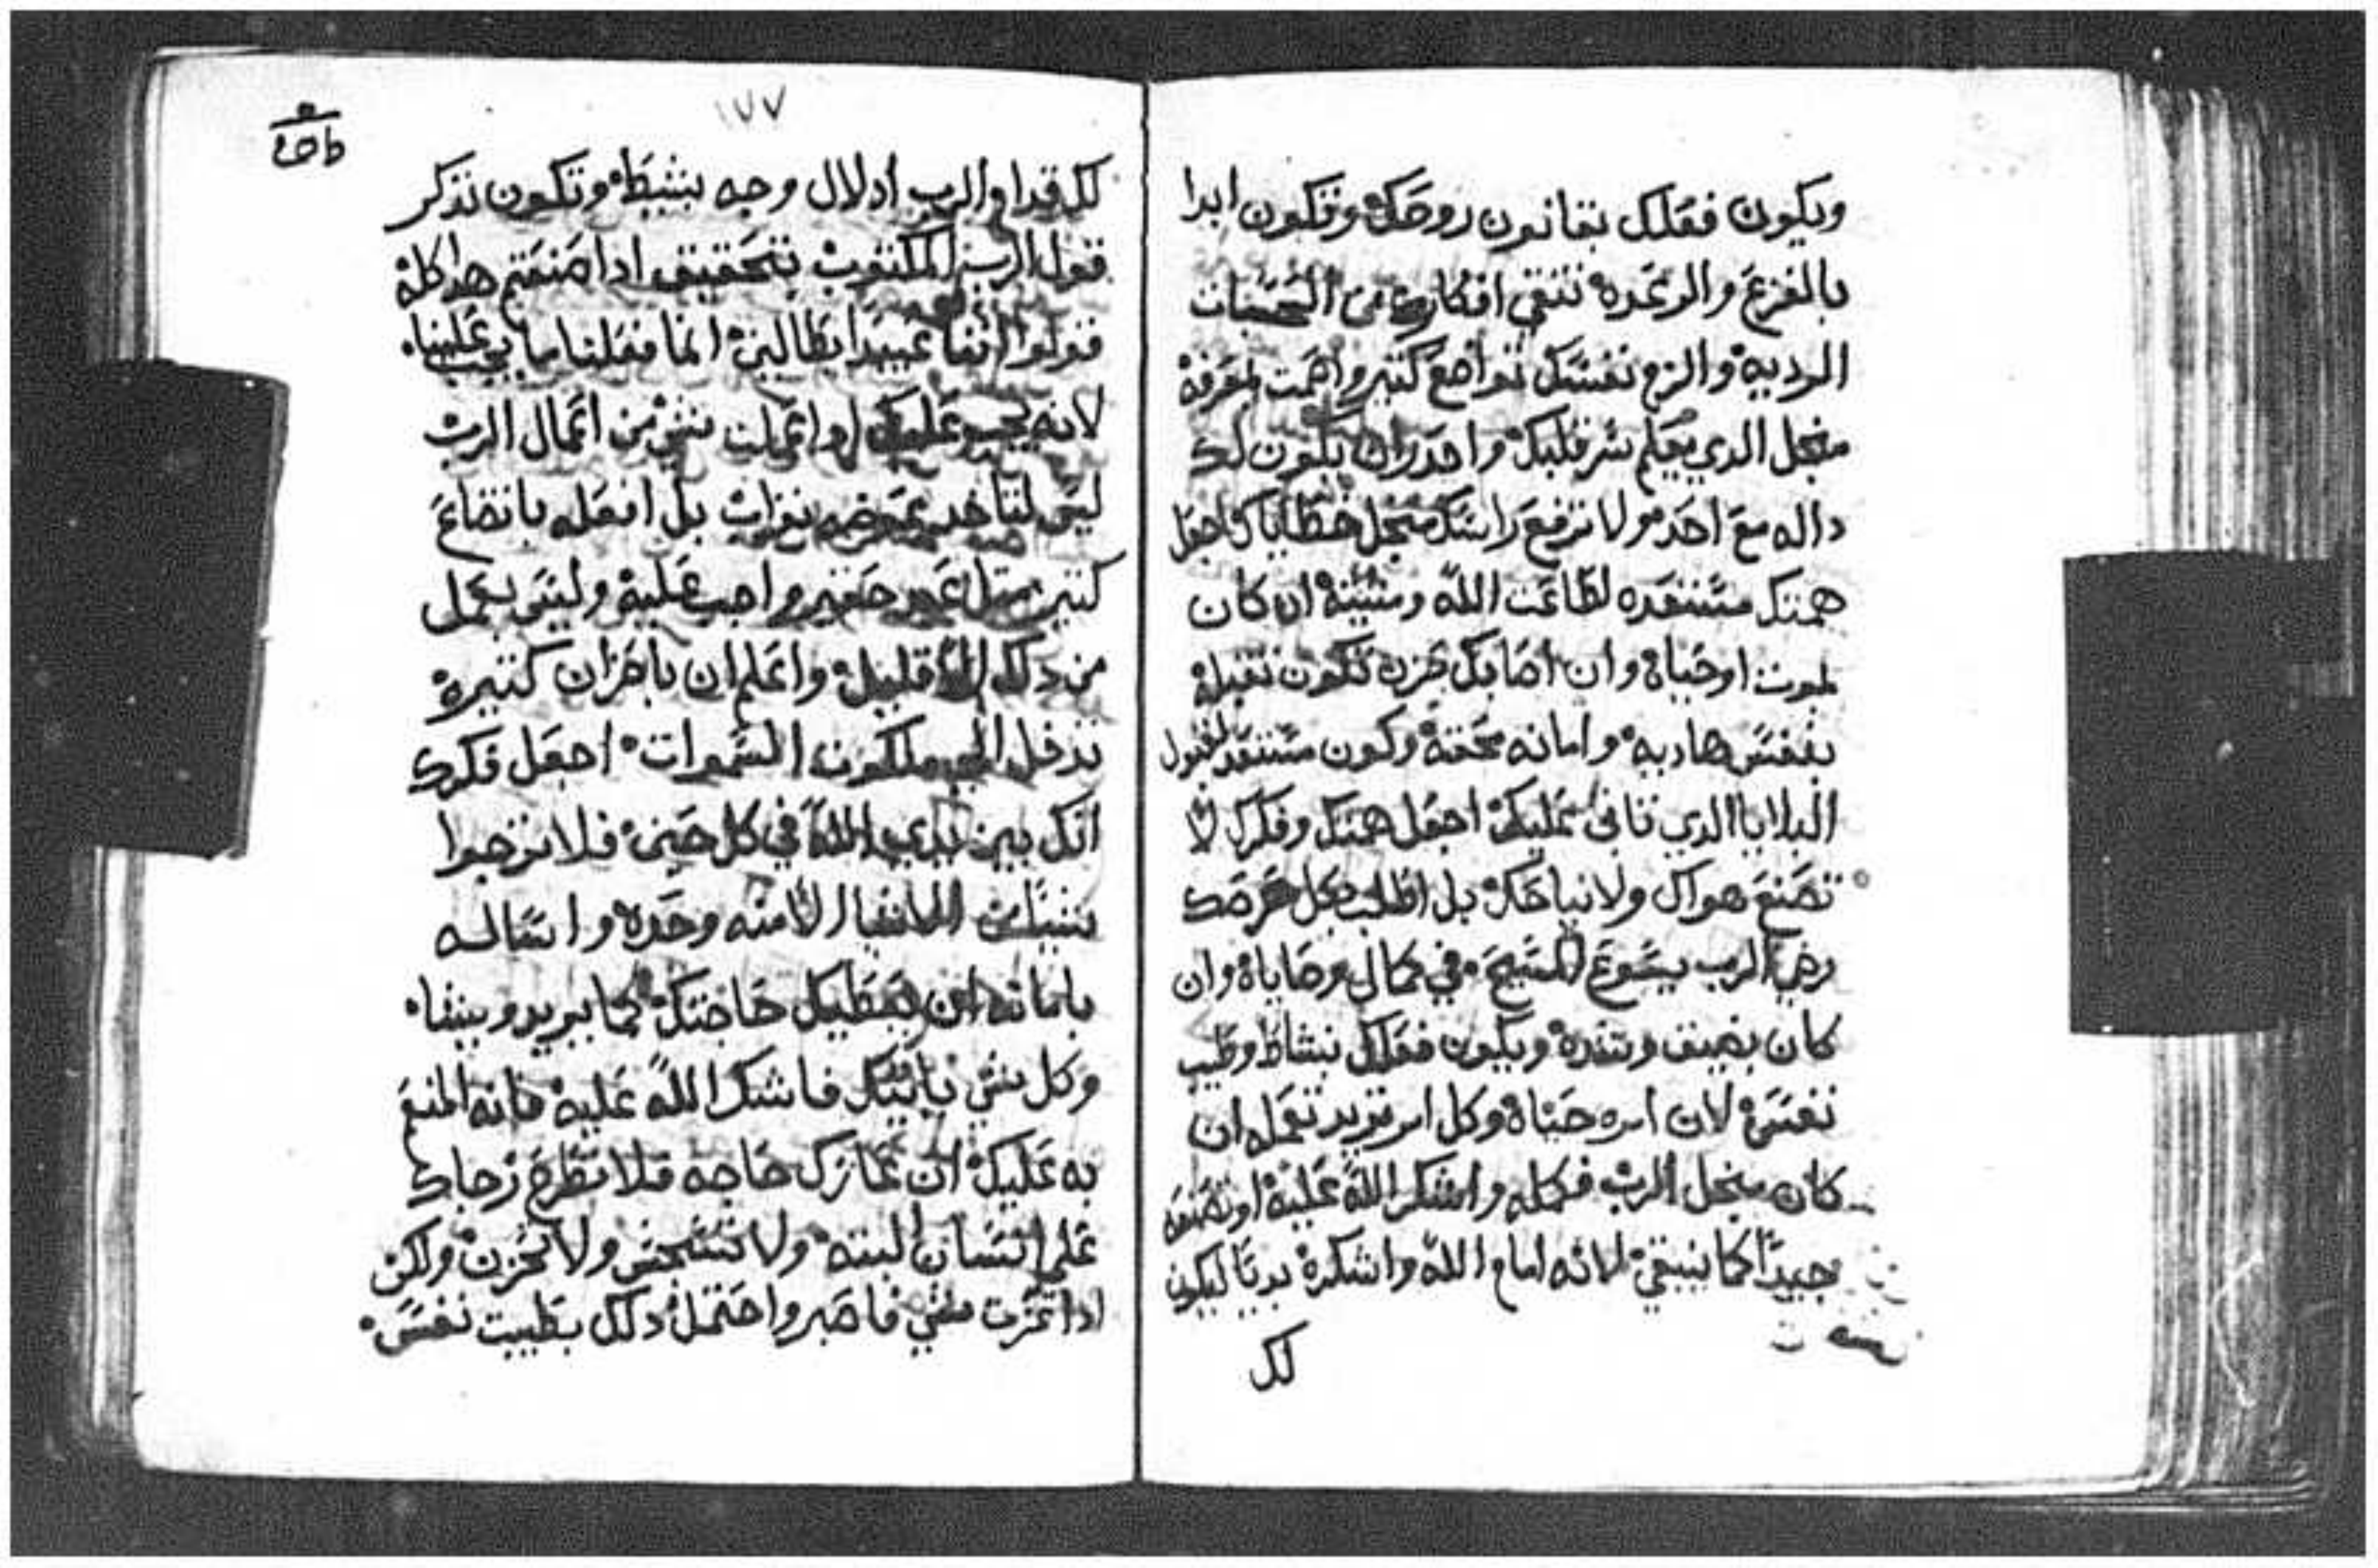 ويكون فعلك بقانون روحك وتكون ابدا
بالفزع والرعده تنقي افكارك من
الرديه والزم نفسك تواضع كتير
منجل الدي يعلم سر قلبك واحدر ان يكون لك
داله مع احد ولا ترفع راسك منجل خطاياك اجعل
همتك مستعده لطاعت الله ومشيته ان كان
لموت او حياه وان اصابك حزن تكون تقبله
بنفس هاديه وامانه محقه وكون مستعد لقبول
البلايا الدي تاتي عليك اجعل همتك وفكرك لا
تصنع هواك ولا نياحك بل اطلب بكل غرضك
رضي الرب يسوع المسيح في كمال وصاياه وان
كان بضيف وشده ويكون فعلك بنشاط وطيب
نفس لان امره حياه وكل امر تريد تعمله ان
كان منجل الرب فكمله واشكر الله عليه او تصنعه
جيدا كما ينبقي لانه امام الله واشكره بديا ليكون
لك
١٧٧
لك قدام الرب ادلال وجه بنشيط وتكون تدكر
قول الرب المكتوب بتحقيق ادا صنعتم هدا كله
فقولوا اننا عبيدا بطالين انما فعلنا ما يجب علينا
لانه يجب عليك لو اعملت شي من اعمال الرب
ليس لتاخد عوضه بل افعله باتضاع
كتير متل عبد حقير واجب عليه وليس يعمل
من دلك الا قليل واعلم ان باحزان كتيره
تدخل الي ملكوت السموات اجعل فكرك
انك بين يدي الله في كل حين فلا ترجوا
شيا من الاشيا الا منه وحده واساله
بامانه ان يعطيك حاجتك كما يريد ويشا
وكل شي ياتيك فاشكر الله عليه فانه المنعم
به عليك ان عازك حاجه فلا تطرح رجاك
علي انسان البته ولا تتسجس ولا تحزن ولكن
ادا عزت شي فاصبر واحتمل دلك بطيبت نفس